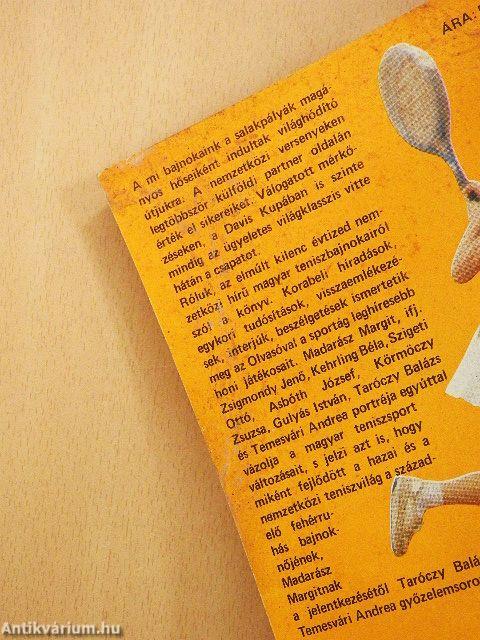 ÁRA:
A mi bajnokaink a salakpályák magá-
nyos hőseiként indultak világhódító
útjukra. A nemzetközi versenyeken
legtöbbször külföldi partner oldalán
érték el sikereiket. Válogatott mérkő-
zéseken, a Davis Kupában is szinte
mindig az ügyeletes világklasszis vitte
hátán a csapatot.
Róluk, az elmúlt kilenc évtized nem-
zetközi hírű magyar teniszbajnokairól
szól a könyv. Korabeli híradások,
egykori tudósítások, visszaemlékezé-
sek, interjúk, beszélgetések ismertetik
meg az Olvasóval a sportág leghíresebb
honi játékosait. Madarász Margit, ifj.
Zsigmondy Jenő, Kehrling Béla, Szigeti
Ottó, Asbóth József, Körmöczy
Zsuzsa, Gulyás István, Taróczy Balázs
és Temesvári Andrea portréja egyúttal
vázolja a magyar teniszsport
változásait, s jelzi azt is, hogy
miként fejlődött a hazai és a
nemzetközi teniszvilág a század-
elő fehérru-
hás bajnok-
nőjének,
Madarász
Margitnak
a jelentkezésétől Taróczy Balá
Temesvári Andrea győzelemsoro
Antikvárium.hu